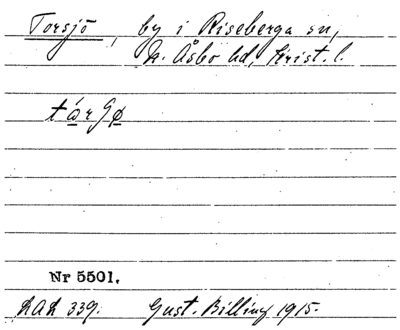 Torsjö, by i Riseberga sn,
N. Åsbo hd, Krist. l.
Nr 5501.
339. Gust. Billing 1915.